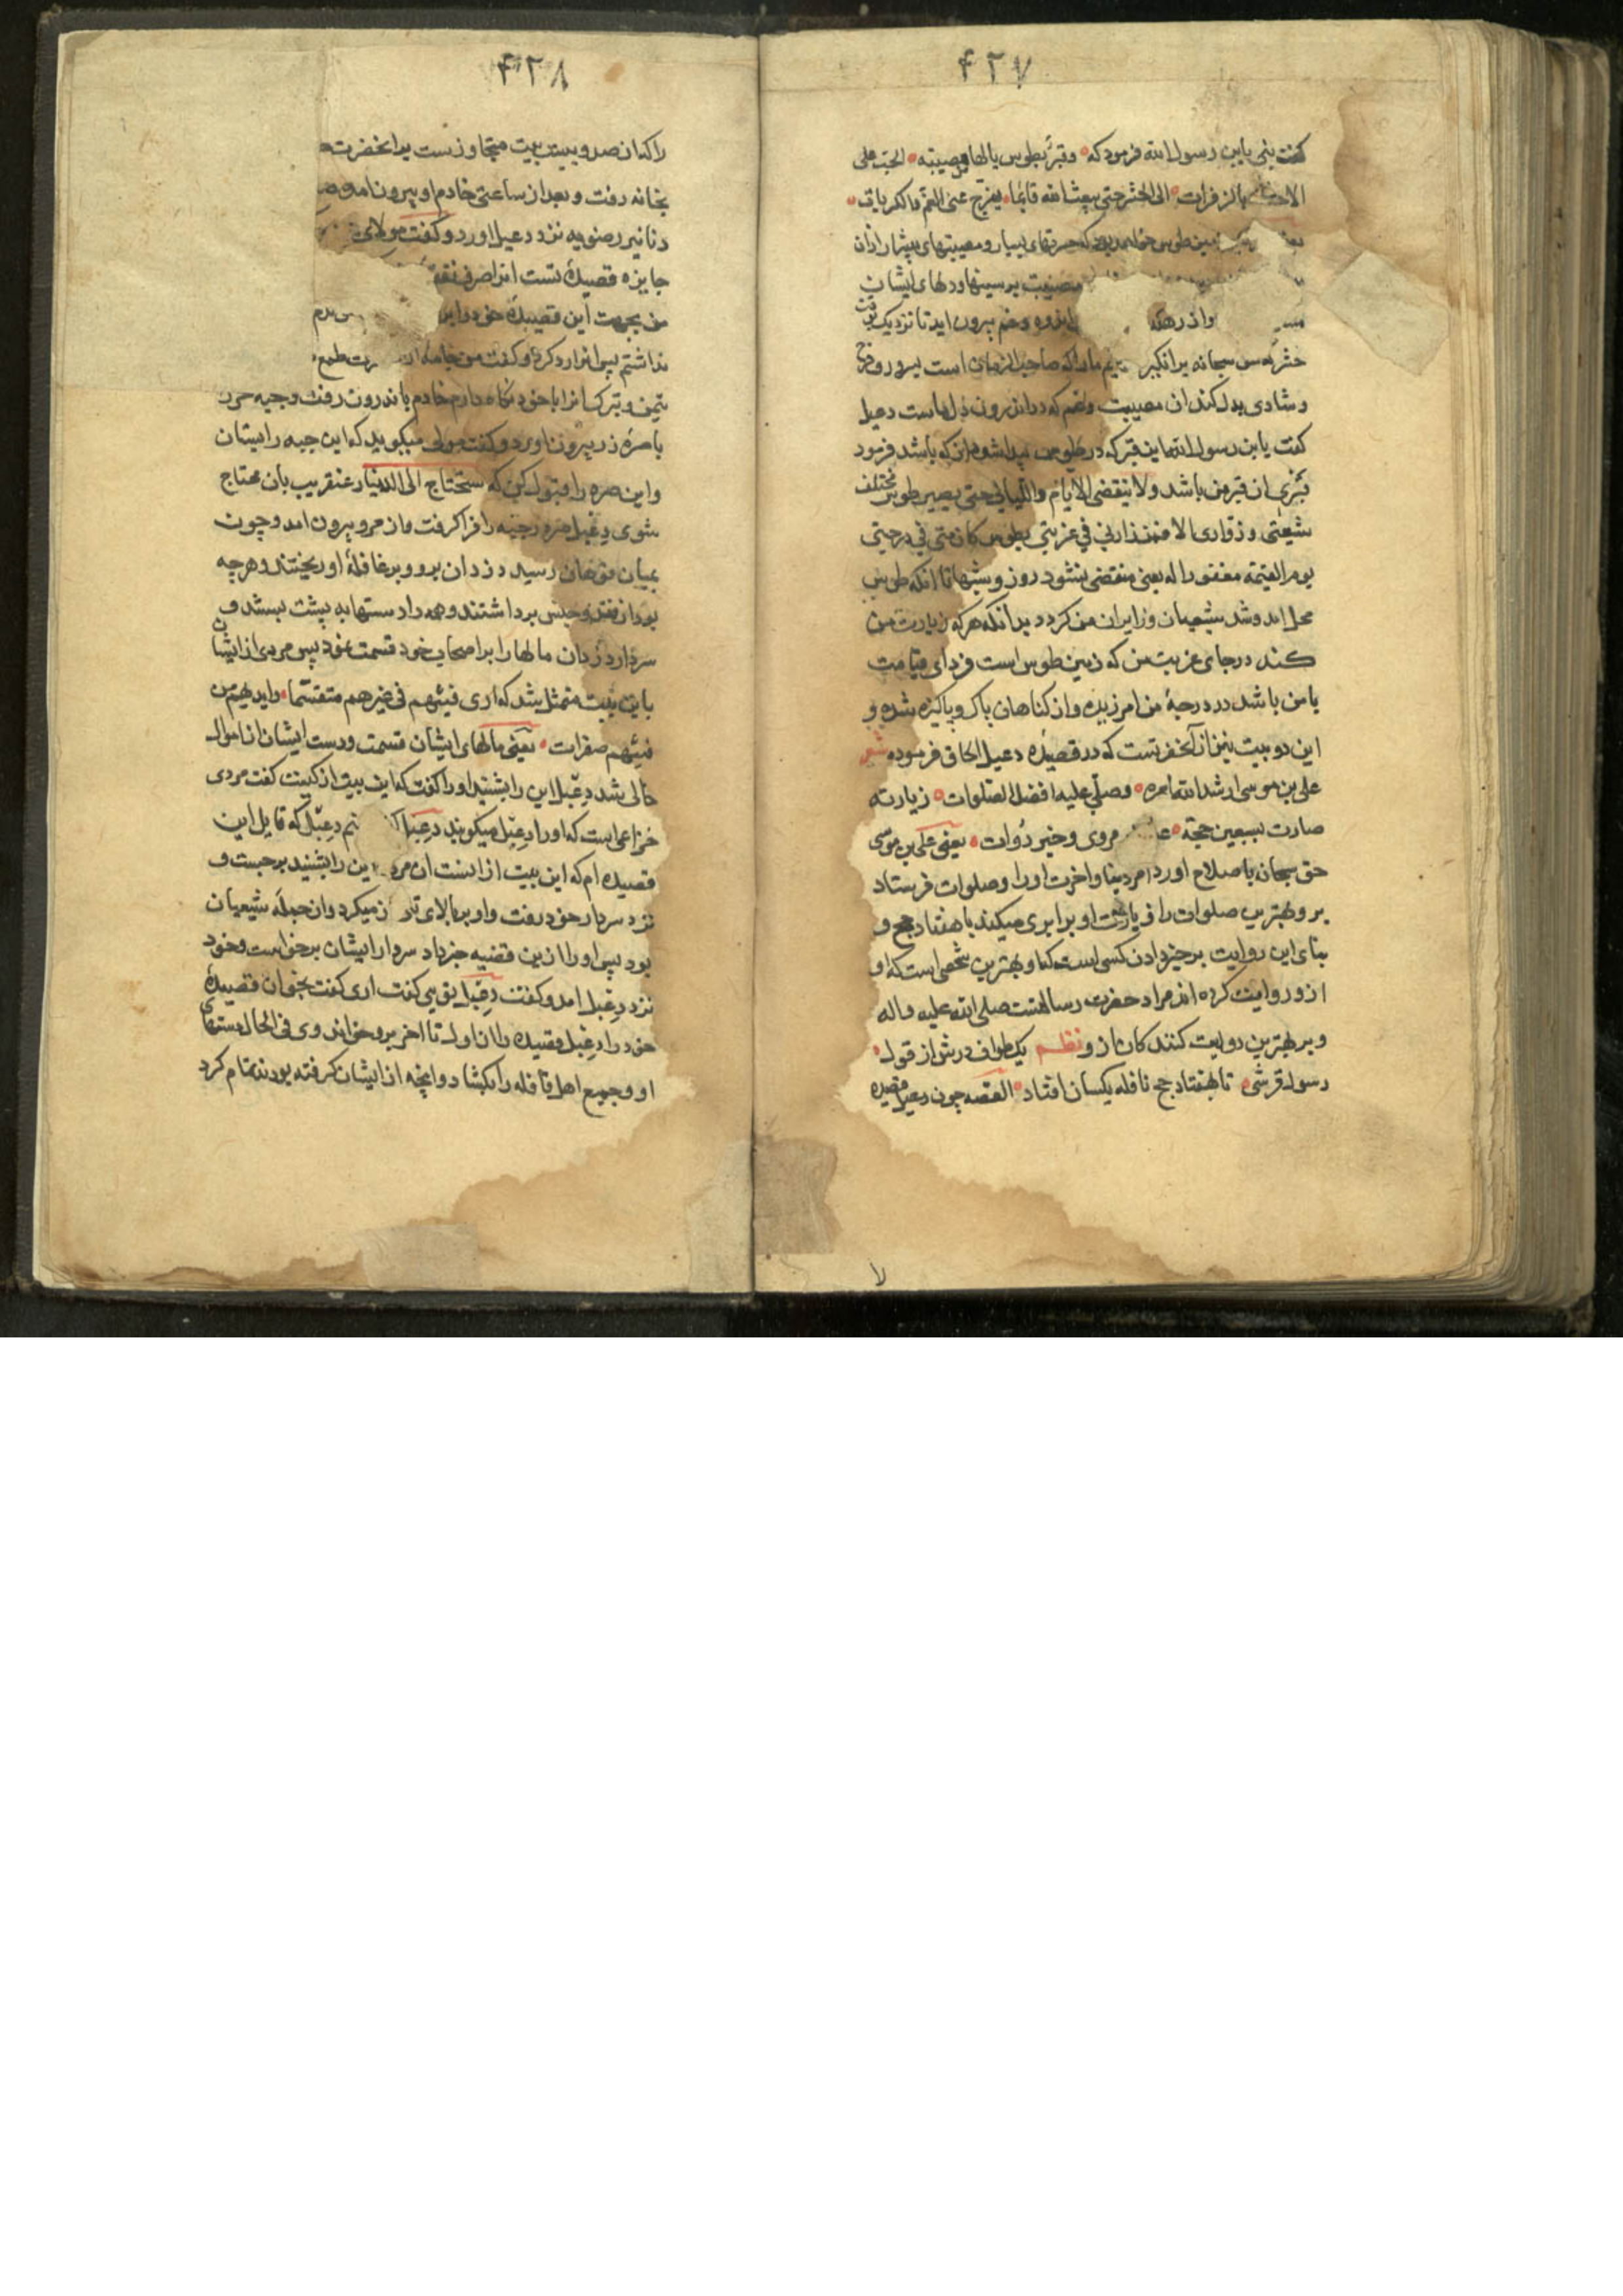 ۴۲۷
کفت بنی یابن رسول الله فرمود که وقبر بطوس یالها من مصیبة الحت علی
بالزفرات الی الحشر حتی یبعث الله قائما یفرج عنی الغم والکربات
زمین طوس خواهد بود که حسرتهای بسیار و مصیبتهای بیشمار ازان
مصیبت بر سینها و دلهای ایشان
واز رهکذ اندوه و غم بیرون اید تا نزدیک
حشر که سبحانه برانکیز مارا که صاحب الزمان است بسرور و فرح
و شادی بدل کند ان مصیبت و غم که در اندرون دلهاست دعبل
کفت یابن رسول الله این قبر که در طوس پیدا شود ازان که باشد فرمود
قبری ان قبر من باشد ولا ینقضی الایام واللیالی حتی یصیر طوس مختلف
شیعتی و زواری الا فمن زارنی فی غربتی بطوس کان معی فی درجتی
یوم القیمة مغفورا له یعنی منقضی نشود روز و شبها تا انکه طوس
محل امد و شد شیعیان و زایران من کردد بدانکه هرکه زیارت من
کند در جای غربت من که زمین طوس است فردای قیامت
با من باشد در درجهٔ من امرزیده و از کناهان پاک و پاکیزه شده و
این دو بیت نیز از آنحضرتست که در قصیدهٔ دعبل الحاق فرموده شعر
علی بن موسی ارشد الله امره وصلی علیه افضل الصلوات زیارته
صارت بسبعین حجة مروی وخیر روات یعنی علی بن موسی
حق سبحانه باصلاح اورد امر دنیا و اخرت اورا و صلوات فرستاد
بر و بهترین صلوات را زیارت او برابری میکند با هفتاد حج و
بنای این روایت بر خبر دادن کسی است که او بهترین شخصی است که او
ازو روایت کرده اند مراد حضرت رسالتست صلی الله علیه واله
و بر بهترین روایت کنند کان از و نظم یک طواف درش از قول
رسول قرشی تا بهفتاد حج نافله یکسان افتاد القصه چون دعبل قصیده
۴۲۸
را که ازان صد و بیست بیت متجاوز ست بدانحضرت
بخانه رفت و بعد از ساعتی خادم او بیرون امد و
دنانیر رضویه نزد دعبل اورد و کفت مولای
جایزه قصیدهٔ تست انرا صرف نفقه
من بجهت این قصیدهٔ خود را
نداشتم پس انرا رد کرد و کفت من جامه از طمع
تیمن و تبرک انرا با خود نکاه دارم خادم باندرون رفت و جبه خز
با صرهٔ زر بیرون اورد و کفت مولی میکوید که این جبه را بستان
و این صره را قبول کن که ستحتاج الی الدینار عنقریب بان محتاج
شوی دعبل صره و جبه را فرا کرفت و از مرو بیرون امد و چون
بمیان قوهان رسید دزدان برو و بر قافلهٔ او ریختند و هرچه
بود از نقد و جنس برداشتند و همه را دستها به پشت ببستند و
سردار دزدان مالها را بر اصحاب خود قسمت نمود پس مردی از ایشان
باین بیت متمثل شد که اری فیئهم فی غیرهم متقسما وایدیهم من
فیئهم صفرات یعنی مالهای ایشان قسمت و دست ایشان از اموال
خالی شد دعبل این را بشنید اورا کفت که این بیت از کیست کفت مردی
خزاعی است که او را دعبل میکویند دعبل منم دعبل که قایل این
قصیده ام که این بیت ازانست ان مرد این را بشنید برجست و
نزد سردار خود رفت و او بر بالای نماز میکرد و ازجمله شیعیان
بود پس او را ازین قضیه خبر داد سردار ایشان برخواست و خود
نزد دعبل امد و کفت دعبل تویی کفت اری کفت بخوان قصیدهٔ
خود را دعبل قصیده را از اول تا اخر برو خواند وی فی الحال دستهای
او و جمیع اهل قافله را بکشاد و انچه از ایشان کرفته بودند تمام کرد